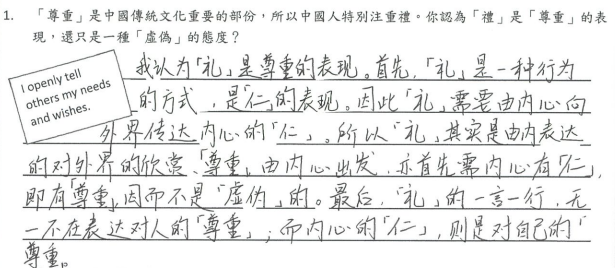 1. 「尊重」是中國傳統文化重要的部份，所以中國人特別注重禮。你認為「禮」是「尊重」的表
現，還只是一種「虛偽」的態度？
I openly tell
others my needs
and wishes.
我认为「礼」是尊重的表现。首先，「礼」是一种行为
的方式，是「仁」的表现。因此「礼」需要由内心向
外界传达内心的「仁」。所以「礼」其实是由内表达
的对外界的欣赏、「尊重」，由内心出发，亦首先需内心有「仁」，
即有「尊重」，因而不是「虚伪」的。最后，「礼」的一言一行，无
一不在表达对人的「尊重」；而内心的「仁」，则是对自己的「
尊重」。